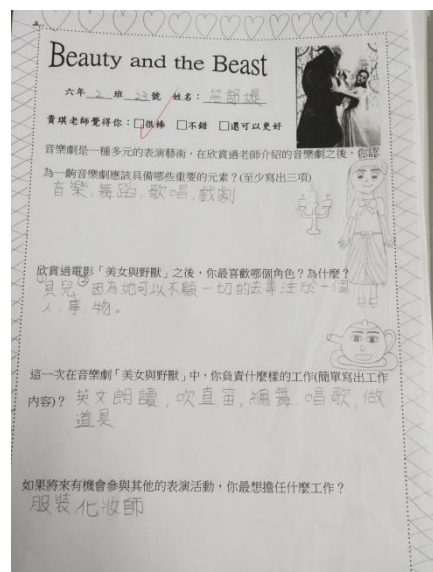 Beauty and the Beast
六年 2 班 23 號 姓名：莊
貴琪老師覺得你：□很棒 □不錯 □還可以更好
音樂劇是一種多元的表演藝術，在欣賞過老師介紹的音樂劇之後，你認
為一齣音樂劇應該具備哪些重要的元素？(至少寫出三項)
音樂，舞蹈，歌唱，戲劇
欣賞過電影「美女與野獸」之後，你最喜歡哪個角色？為什麼？
貝兒 因為她可以不顧一切的去專注於一個
人、事、物。
這一次在音樂劇「美女與野獸」中，你負責什麼樣的工作(簡單寫出工作
內容)？ 英文朗讀，吹直笛，編舞，唱歌，做
道具
如果將來有機會參與其他的表演活動，你最想擔任什麼工作？
服裝化妝師